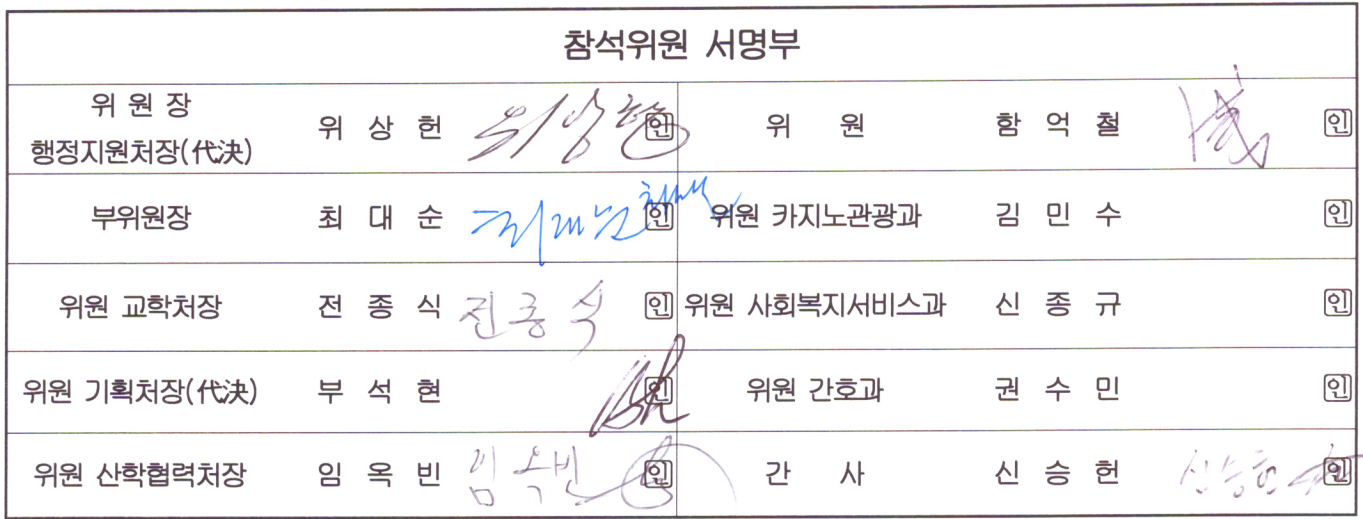 참석위원 서명부
위 원 장
행정지원처장(代決) 위 상 헌 위상헌 인 위 원 함 억 철 인
부위원장 최 대 순 최대순 인 위원 카지노관광과 김 민 수 인
위원 교학처장 전 종 식 전종식 인 위원 사회복지서비스과 신 종 규 인
위원 기획처장(代決) 부 석 현 인 위원 간호과 권 수 민 인
위원 산학협력처장 임 옥 빈 임옥빈 인 간 사 신 승 헌 신승헌 인